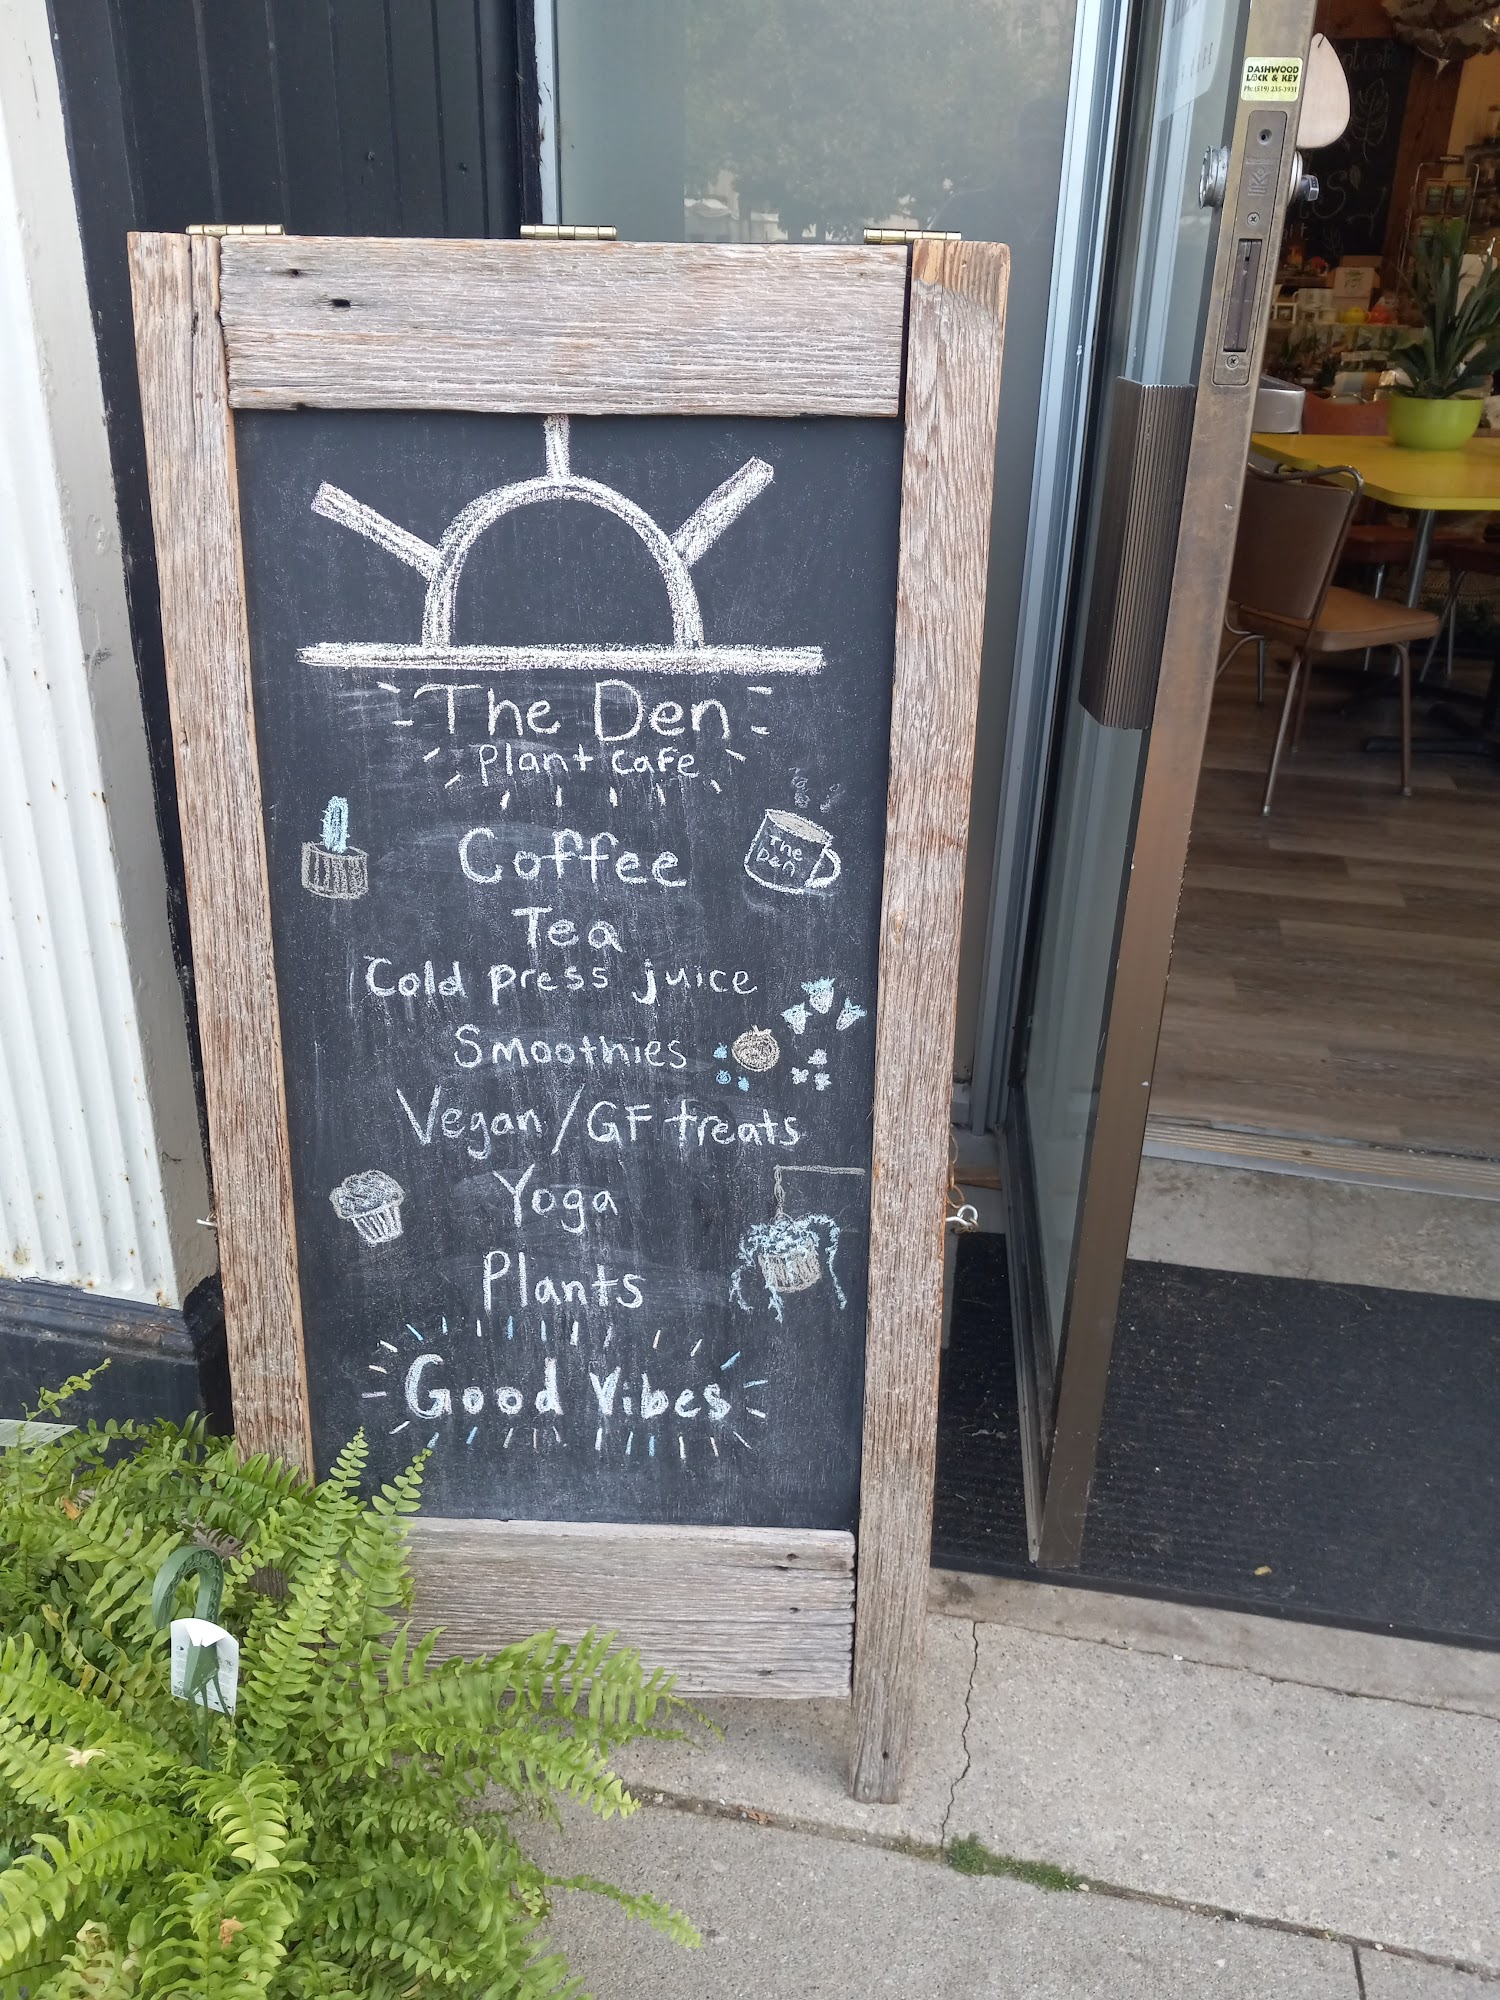 DASHWOOD
LOCK & KEY
Ph: (519) 235-3931
The Den
Plant Cafe
Coffee
The
Den
Tea
Cold press juice
Smoothies
Vegan/GF treats
Yoga
Plants
Good Vibes